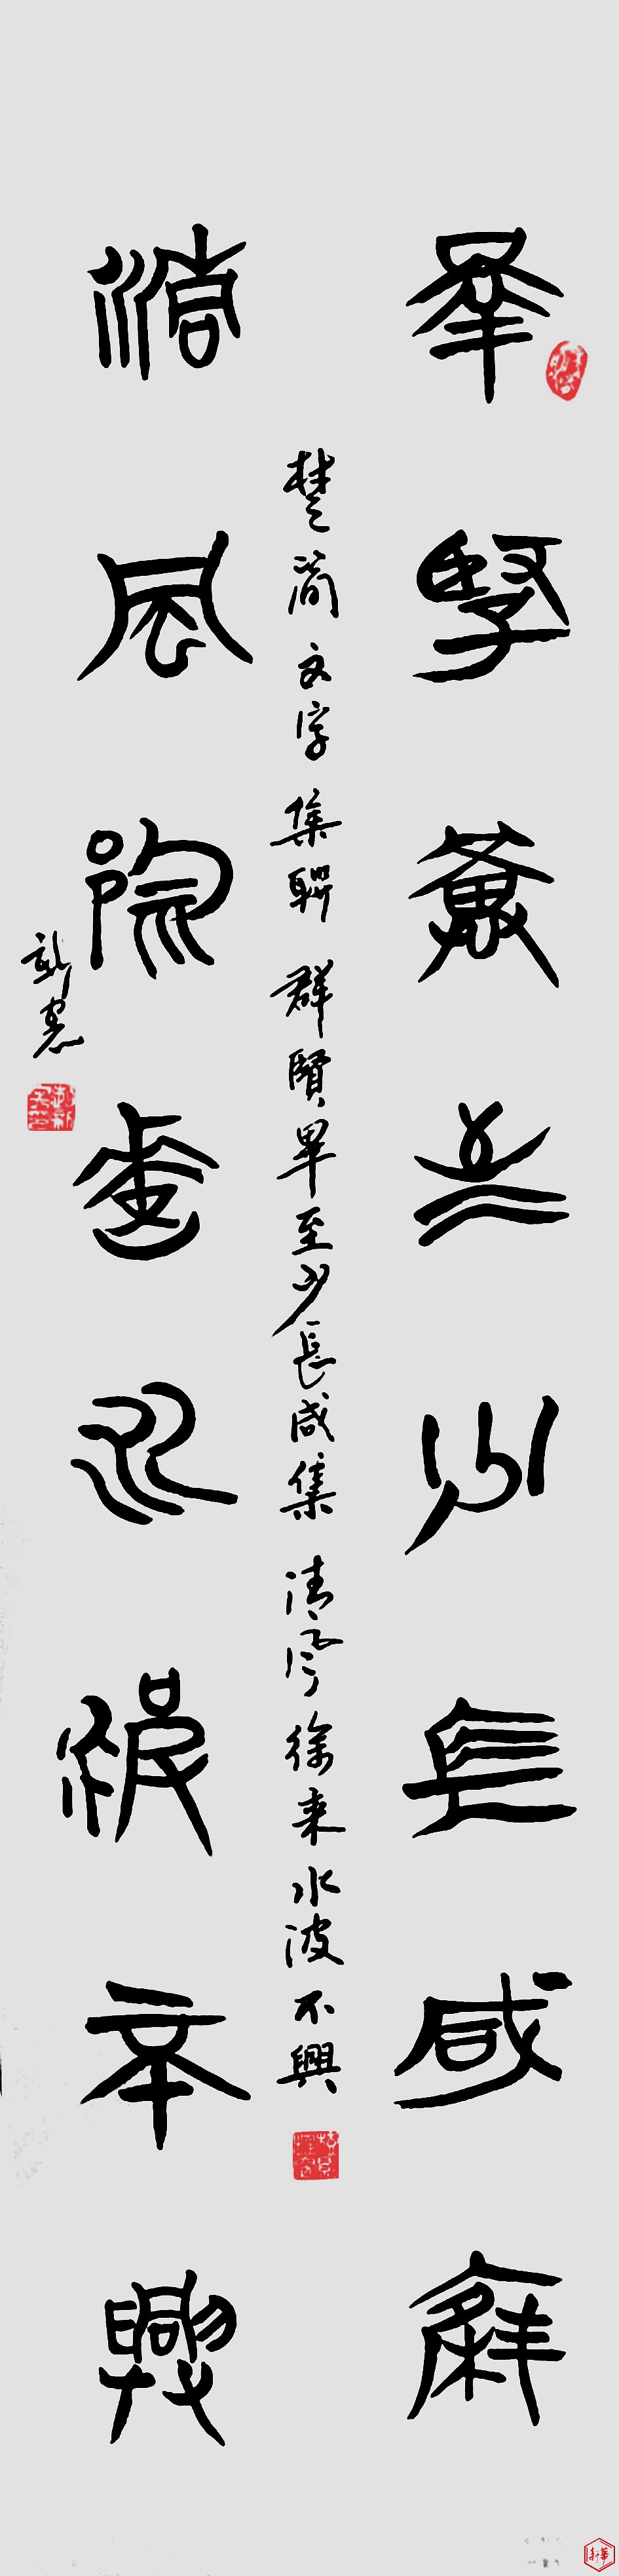 群賢畢至少長咸集
楚简文字集聯 群賢畢至少長咸集 清风徐来水波不興
清風徐來水波不興
新華